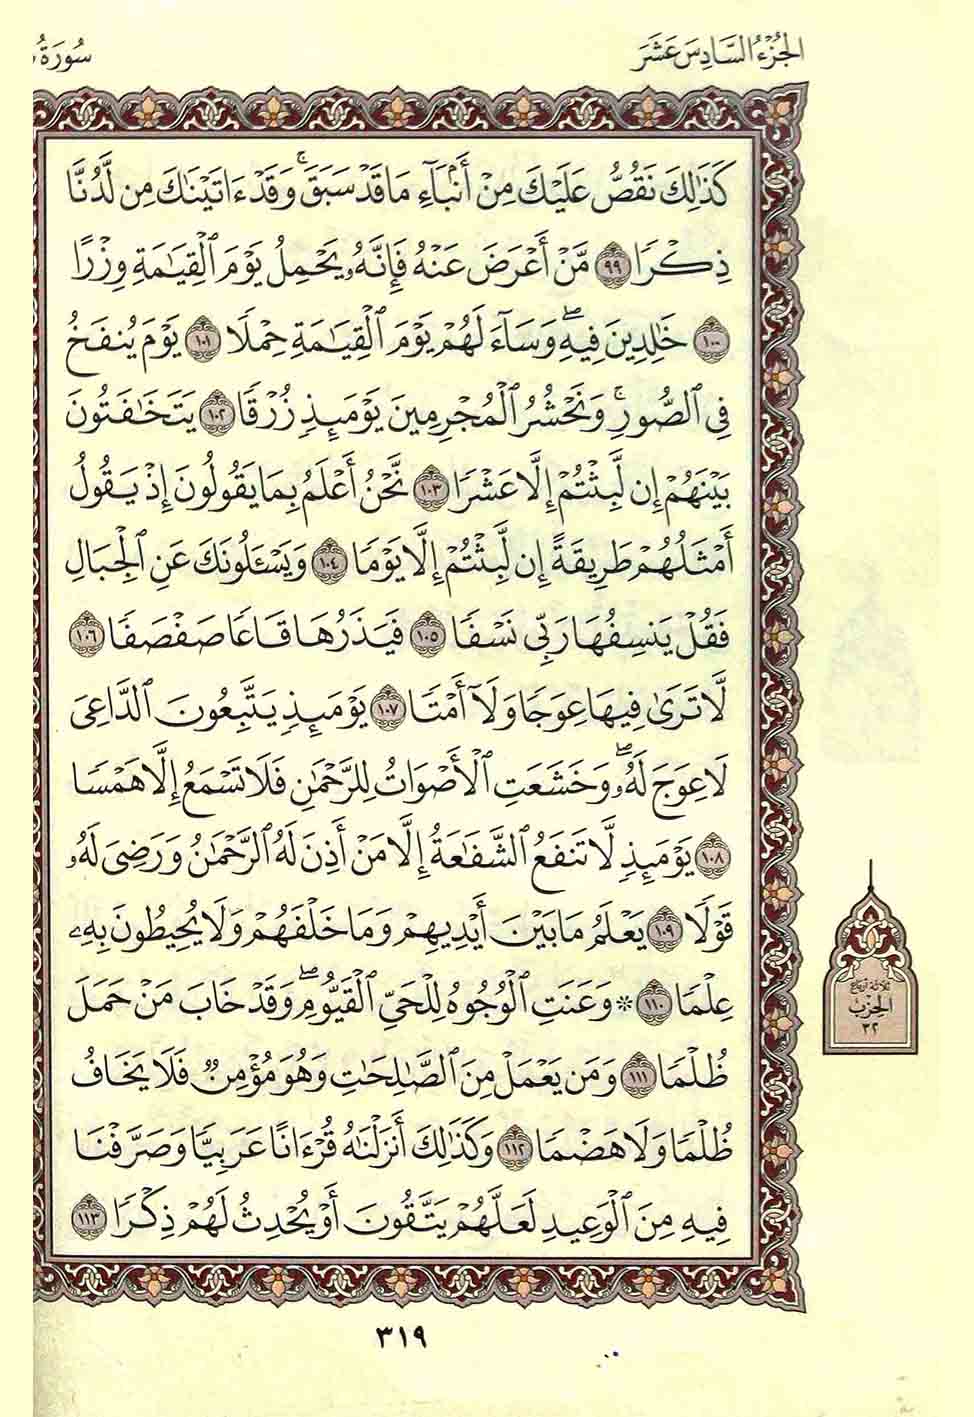 الجزء السادس عشر
سورة
كَذَٰلِكَ نَقُصُّ عَلَيْكَ مِنْ أَنۢبَآءِ مَا قَدْ سَبَقَۚ وَقَدْ ءَاتَيْنَٰكَ مِن لَّدُنَّا
ذِكْرًا ٩٩ مَّنْ أَعْرَضَ عَنْهُ فَإِنَّهُۥ يَحْمِلُ يَوْمَ ٱلْقِيَٰمَةِ وِزْرًا
١٠٠ خَٰلِدِينَ فِيهِۖ وَسَآءَ لَهُمْ يَوْمَ ٱلْقِيَٰمَةِ حِمْلًا ١٠١ يَوْمَ يُنفَخُ
فِى ٱلصُّورِۚ وَنَحْشُرُ ٱلْمُجْرِمِينَ يَوْمَئِذٍ زُرْقًا ١٠٢ يَتَخَٰفَتُونَ
بَيْنَهُمْ إِن لَّبِثْتُمْ إِلَّا عَشْرًا ١٠٣ نَّحْنُ أَعْلَمُ بِمَا يَقُولُونَ إِذْ يَقُولُ
أَمْثَلُهُمْ طَرِيقَةً إِن لَّبِثْتُمْ إِلَّا يَوْمًا ١٠٤ وَيَسْـَٔلُونَكَ عَنِ ٱلْجِبَالِ
فَقُلْ يَنسِفُهَا رَبِّى نَسْفًا ١٠٥ فَيَذَرُهَا قَاعًا صَفْصَفًا ١٠٦
لَّا تَرَىٰ فِيهَا عِوَجًا وَلَآ أَمْتًا ١٠٧ يَوْمَئِذٍ يَتَّبِعُونَ ٱلدَّاعِىَ
لَا عِوَجَ لَهُۥۖ وَخَشَعَتِ ٱلْأَصْوَاتُ لِلرَّحْمَٰنِ فَلَا تَسْمَعُ إِلَّا هَمْسًا
١٠٨ يَوْمَئِذٍ لَّا تَنفَعُ ٱلشَّفَٰعَةُ إِلَّا مَنْ أَذِنَ لَهُ ٱلرَّحْمَٰنُ وَرَضِىَ لَهُۥ
قَوْلًا ١٠٩ يَعْلَمُ مَا بَيْنَ أَيْدِيهِمْ وَمَا خَلْفَهُمْ وَلَا يُحِيطُونَ بِهِۦ
عِلْمًا ١١٠ * وَعَنَتِ ٱلْوُجُوهُ لِلْحَىِّ ٱلْقَيُّومِۖ وَقَدْ خَابَ مَنْ حَمَلَ
ظُلْمًا ١١١ وَمَن يَعْمَلْ مِنَ ٱلصَّٰلِحَٰتِ وَهُوَ مُؤْمِنٌ فَلَا يَخَافُ
ظُلْمًا وَلَا هَضْمًا ١١٢ وَكَذَٰلِكَ أَنزَلْنَٰهُ قُرْءَانًا عَرَبِيًّا وَصَرَّفْنَا
فِيهِ مِنَ ٱلْوَعِيدِ لَعَلَّهُمْ يَتَّقُونَ أَوْ يُحْدِثُ لَهُمْ ذِكْرًا ١١٣
ثلاثة أرباع
الحزب
٣٢
٣١٩